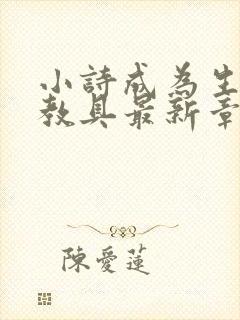 小詩成為生
教具最新章
陳愛蓮